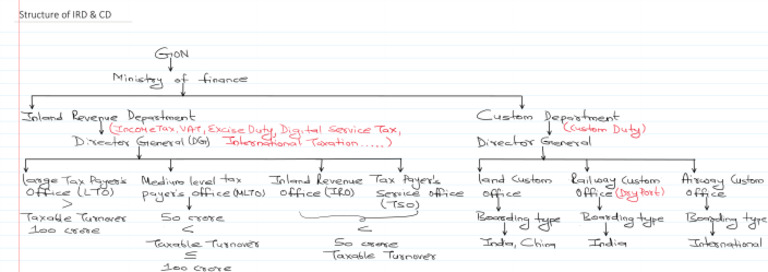 Structure of IRD & CD
GON
Ministry of finance
Inland Revenue Department
(Income Tax, VAT, Excise Duty, Digital Service Tax,
International Taxation.....)
Director General (DG)
Custom Department
(Custom Duty)
Director General
Large Tax Payer's
Office (LTO)
>
Taxable Turnover
100 crore
Medium level tax
payer's office (MLTO)
50 crore
<
Taxable Turnover
≤
100 crore
Inland Revenue
Office (IRO)
Tax Payer's
Service office
(TSO)
<
50 crore
Taxable Turnover
land Custom
office
Boarding type
India, China
Railway Custom
Office (Dry Port)
Boarding type
India
Airway Custom
office
Boarding type
International